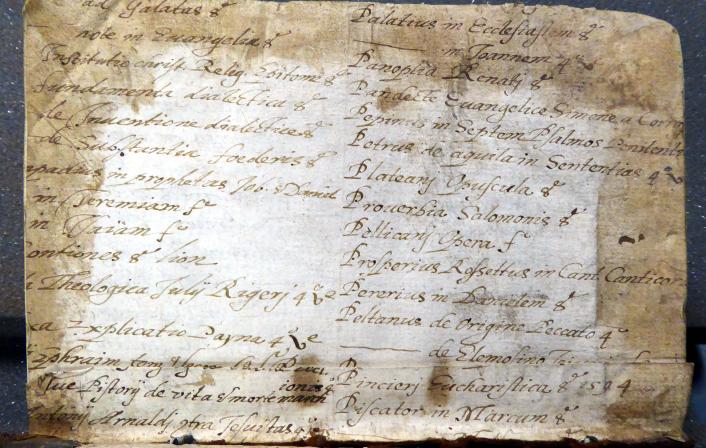 ad Galatas 8º
note in Euangelia 8º
Institutio christ. Relig. Epitome 8º
fundamenta dialectica 8º
de Inuentione dialectice 8º
de Substantia foederis 8º
mpadius in prophetas Job. & Daniel
in Jeremiam fº
in Isaiam fº
ontiones 8º lion
Theologica Julij Rigerij 4º
xa Explicatio 4º
Ephraim
Pistorij de vita & morte
Antonij Arnaldj Jesuitas 4º
Palatius in Ecclesiastem 8º
——— in Joannem 4º
Panoplia Renatj 8º
Pandecte Euangelice Simone a Corro
Pepinus in Septem Psalmos Penitent
Petrus de aquila in Sententias 4º
Plateanj Opuscula 8º
Prouerbia Salomonis 8º
Pellicanj Opera fº
Prosperius Rossettus in Cant. Canticor
Pererius in Danielem 8º
Peltanus de Origine Peccato 4º
——— de Elemosino
Pincierj Eucharistica 8º 1594
Piscator in Marcum 8º